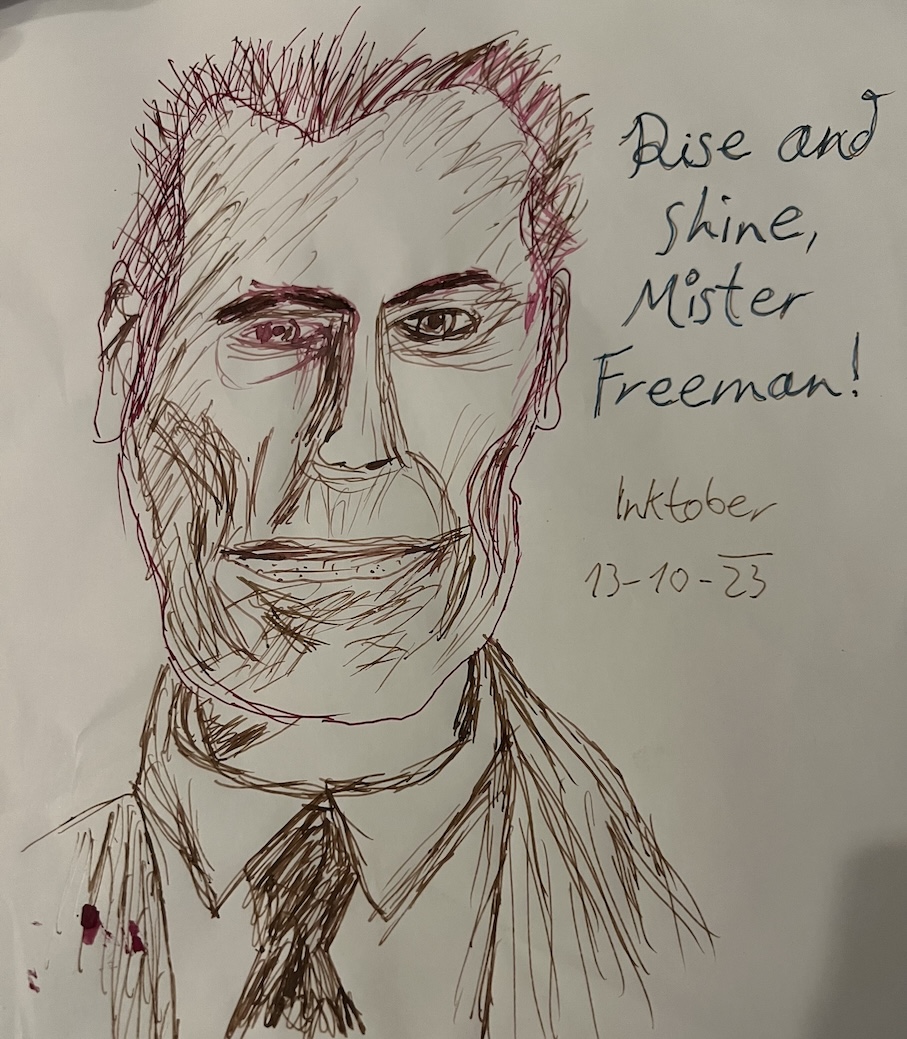 Rise and
shine,
Mister
Freeman!
Inktober
13-10-23